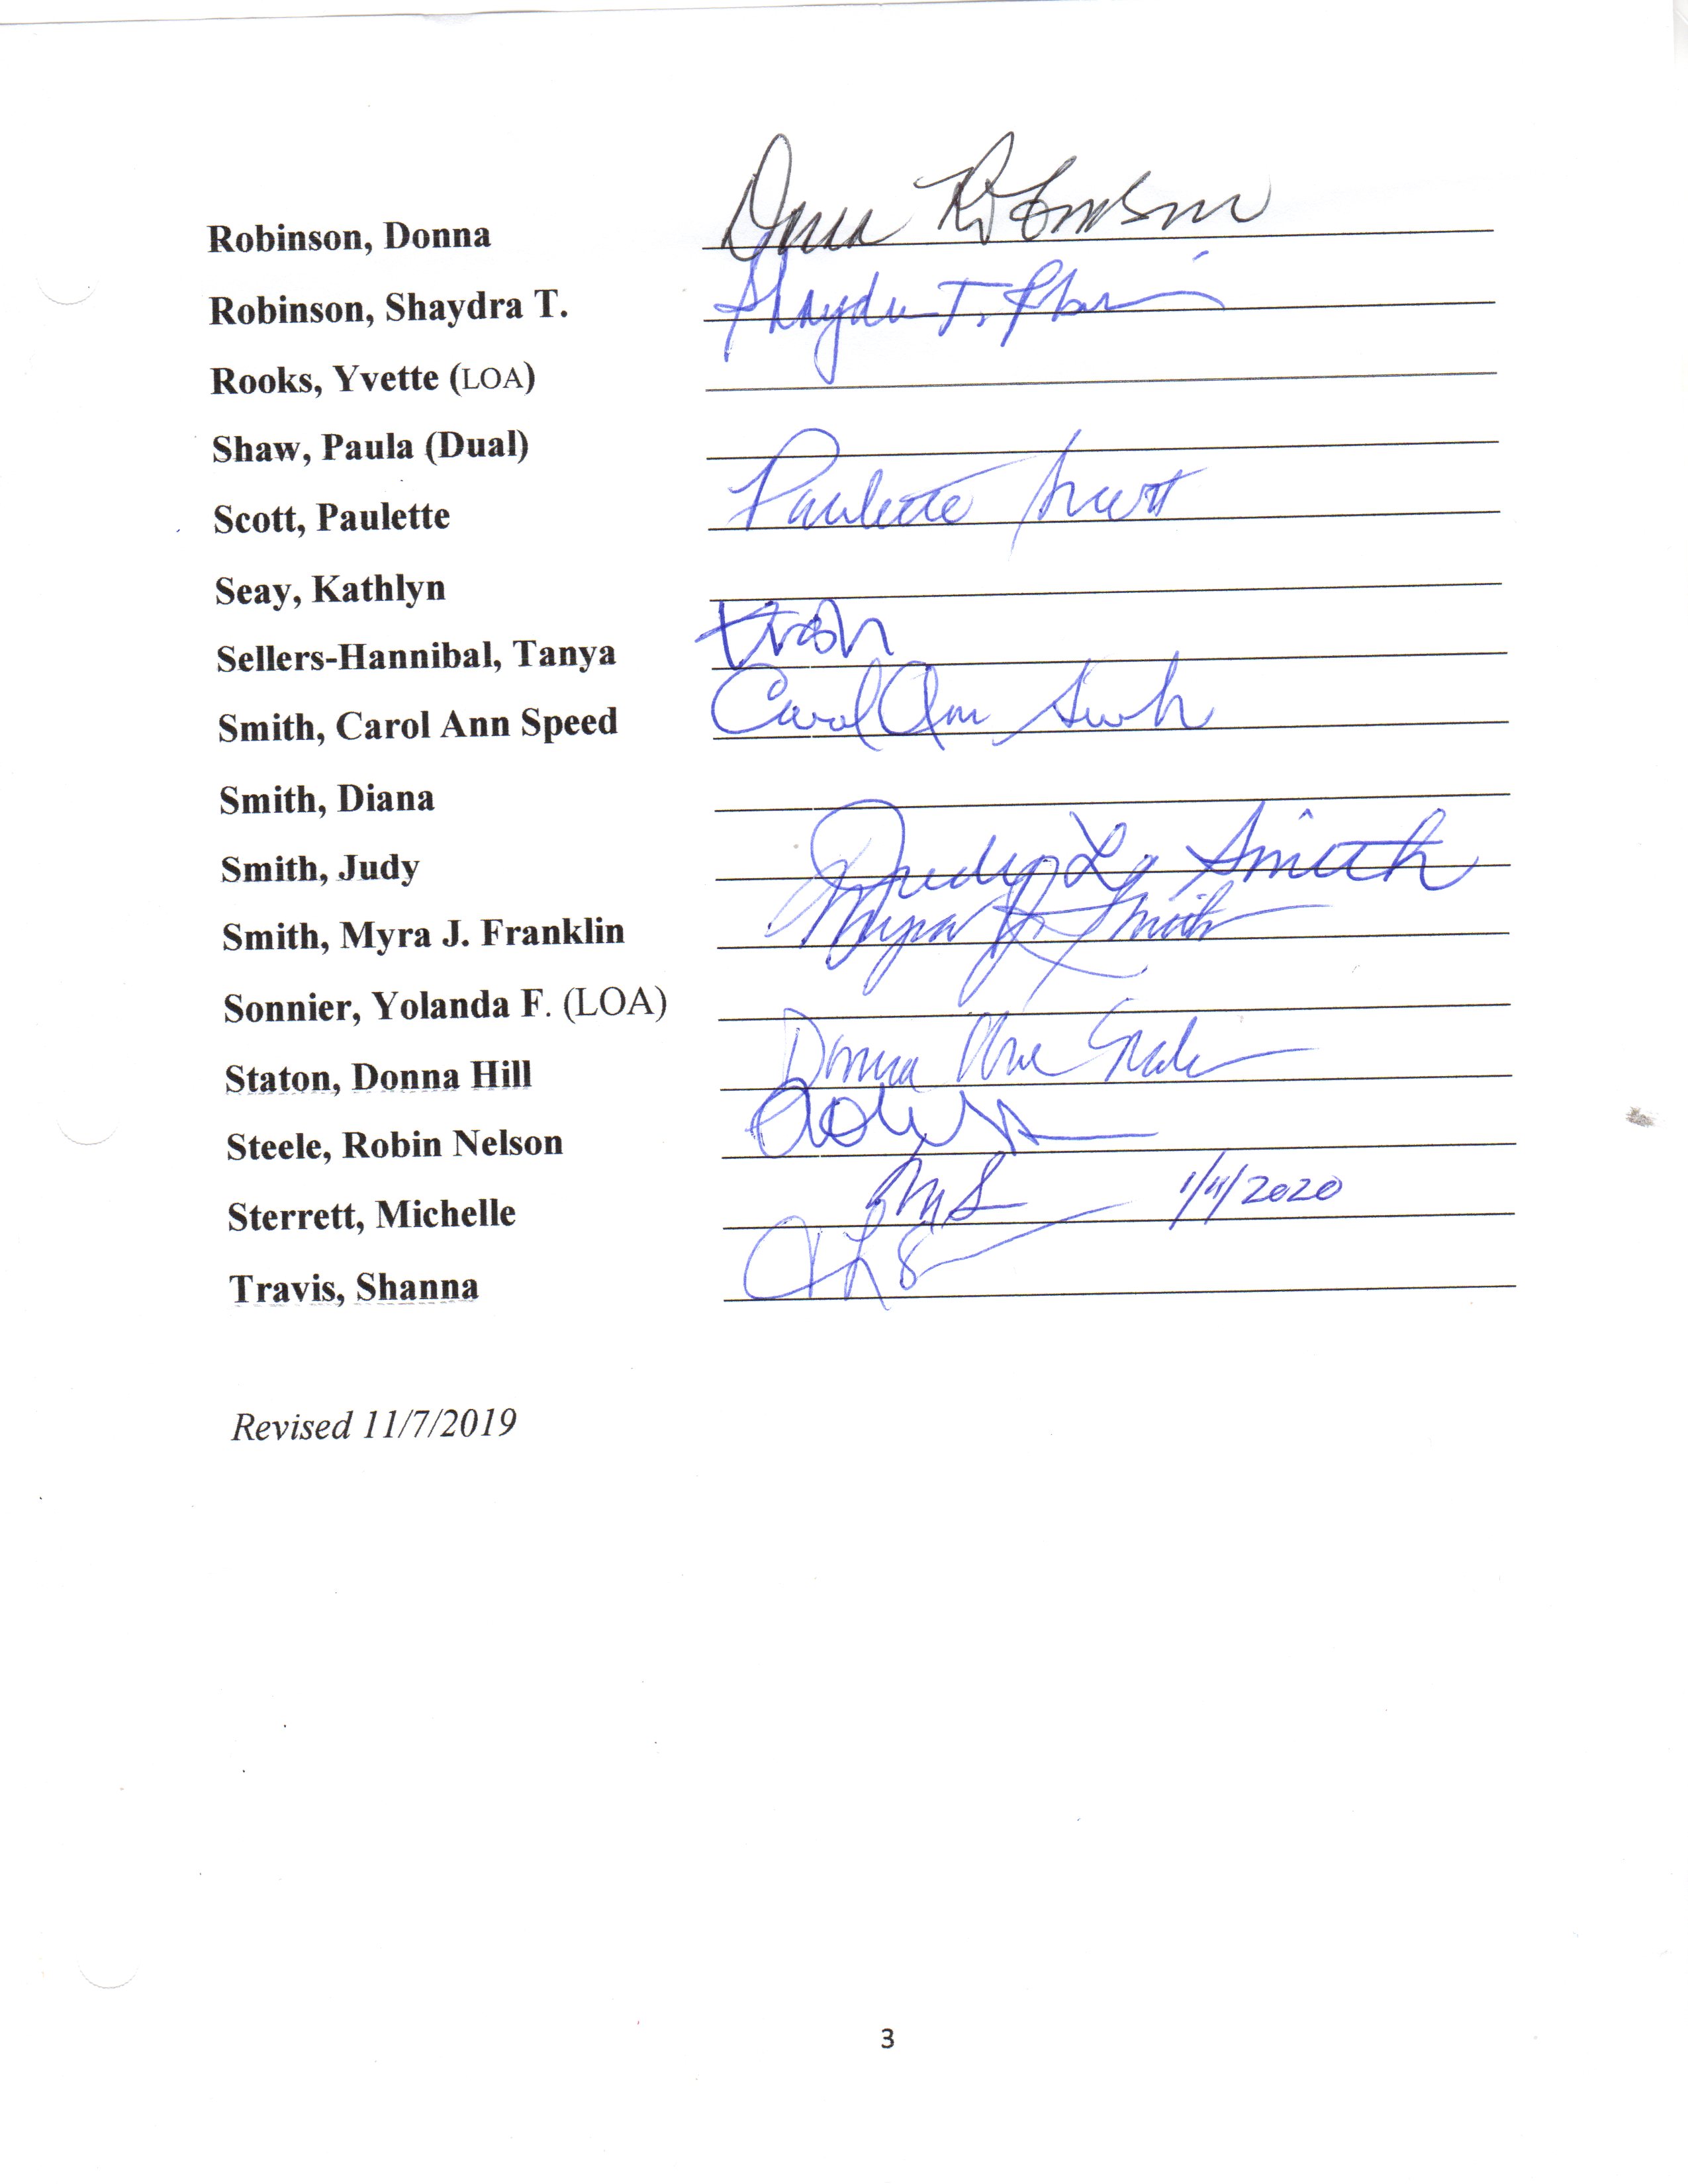 Robinson, Donna Donna Robinson
Robinson, Shaydra T. Shaydra T.
Rooks, Yvette (LOA)
Shaw, Paula (Dual)
Scott, Paulette Paulette Scott
Seay, Kathlyn
Sellers-Hannibal, Tanya
Smith, Carol Ann Speed Carol Ann Smith
Smith, Diana
Smith, Judy Judy L. Smith
Smith, Myra J. Franklin Myra J. Smith
Sonnier, Yolanda F. (LOA)
Staton, Donna Hill Donna
Steele, Robin Nelson
Sterrett, Michelle MS 1/11/2020
Travis, Shanna
Revised 11/7/2019
3